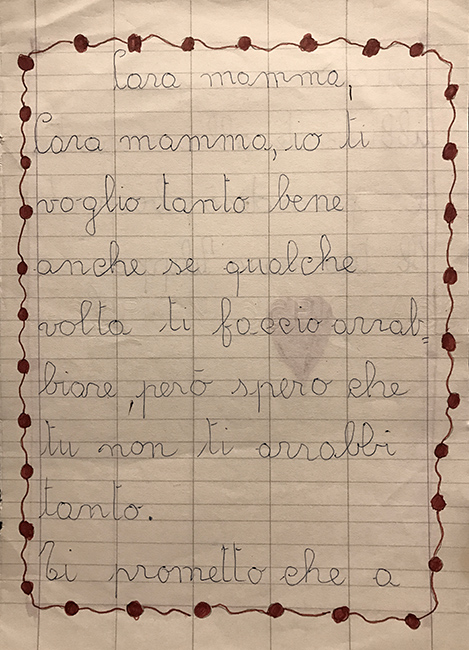 Cara mamma,
Cara mamma, io ti
voglio tanto bene
anche se qualche
volta ti faccio arrab=
biare, però spero che
tu non ti arrabbi
tanto.
Ti prometto che a